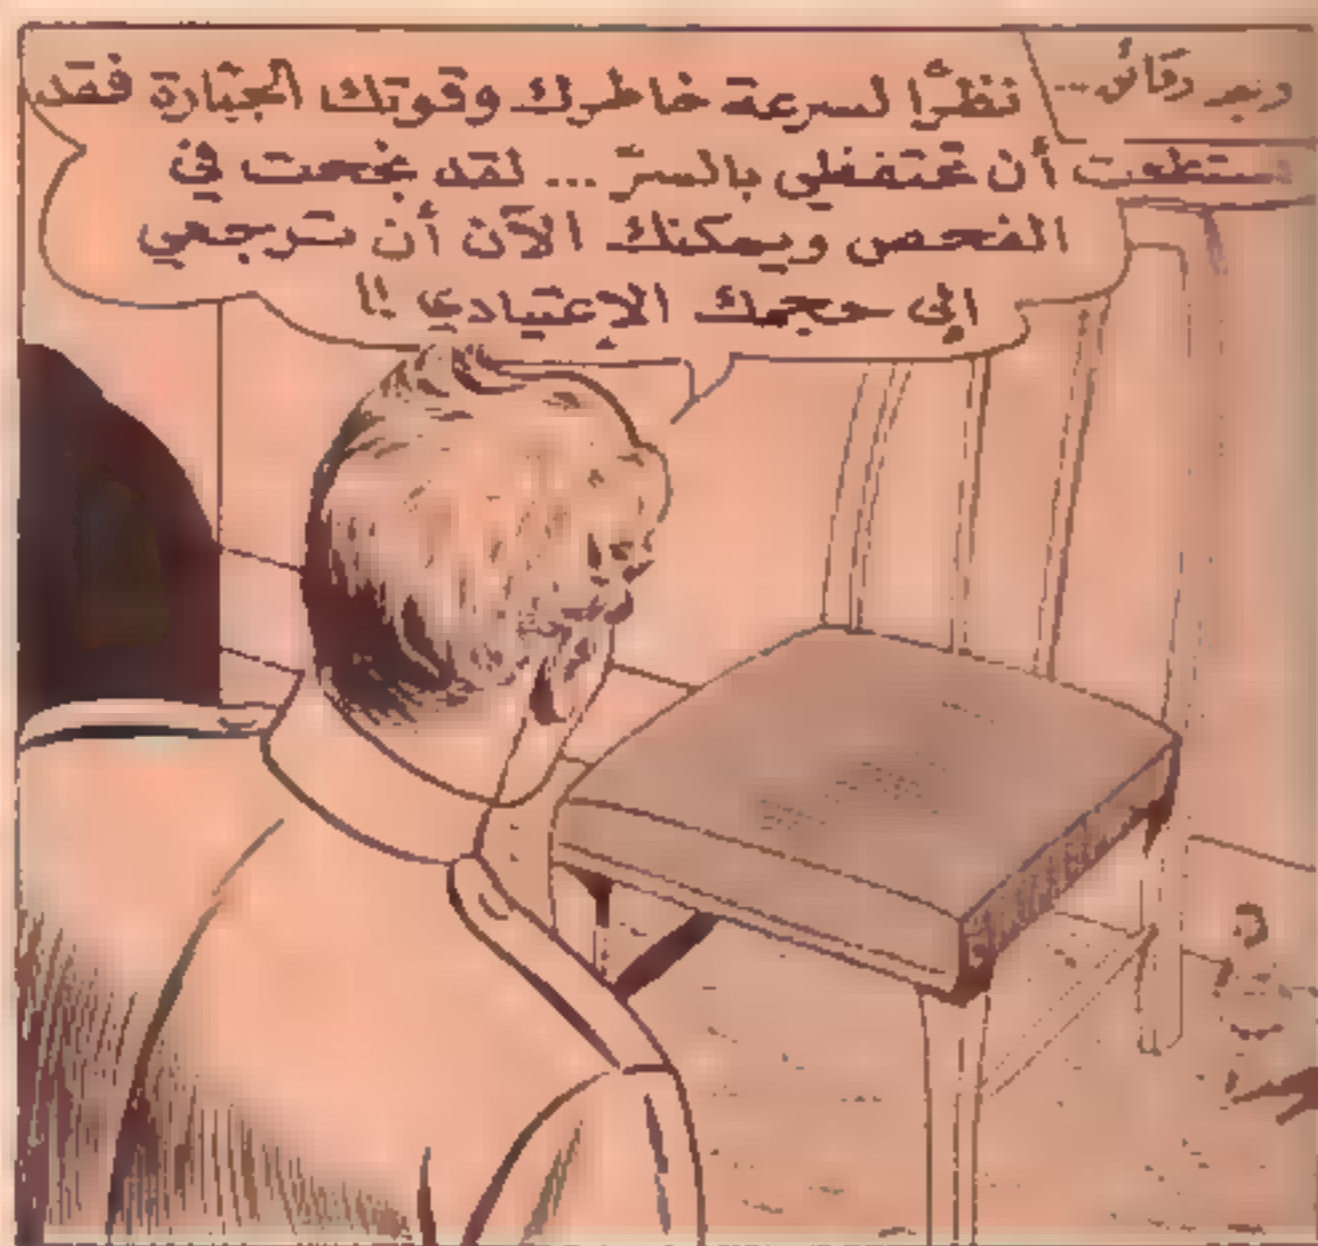 وبعد دقائق...
نظرًا لسرعة خاطرك وقوتك الجبّارة فقد
استطعت أن تحتفظي بالسرّ ... لقد نجحت في
الفحص ويمكنك الآن أن ترجعي
إلى حجمك الإعتيادي !!